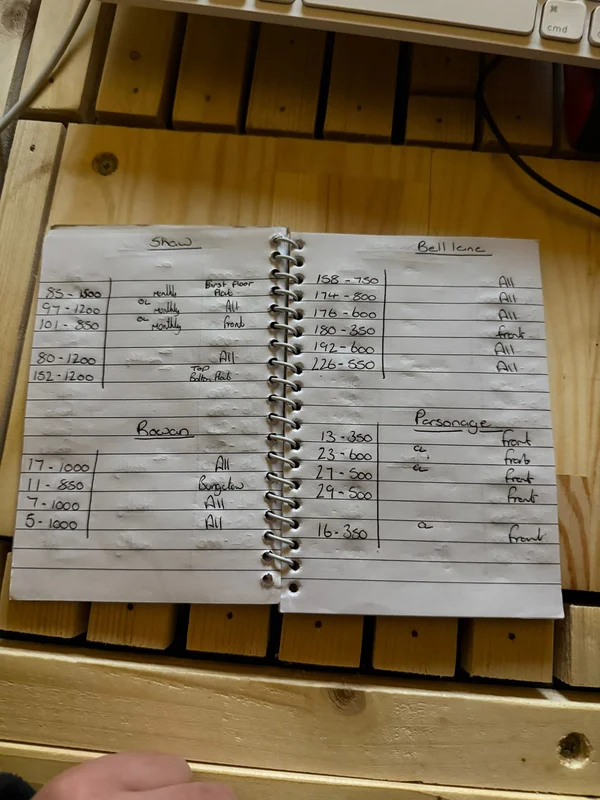 ⌘
cmd
Shaw
85 - 1500 monthly First Floor Flat
97 - 1200 OL monthly All
101 - 850 OL monthly front
80 - 1200 All
152 - 1200 Top Bottom Flat
Rowan
17 - 1000 All
11 - 850 Bungalow
7 - 1000 All
5 - 1000 All
Bell lane
158 - 750 All
174 - 800 All
176 - 600 All
180 - 350 front
192 - 600 All
226 - 550 All
Parsonage
13 - 350 front
23 - 600 OL front
27 - 500 OL front
29 - 500 front
16 - 350 OL front